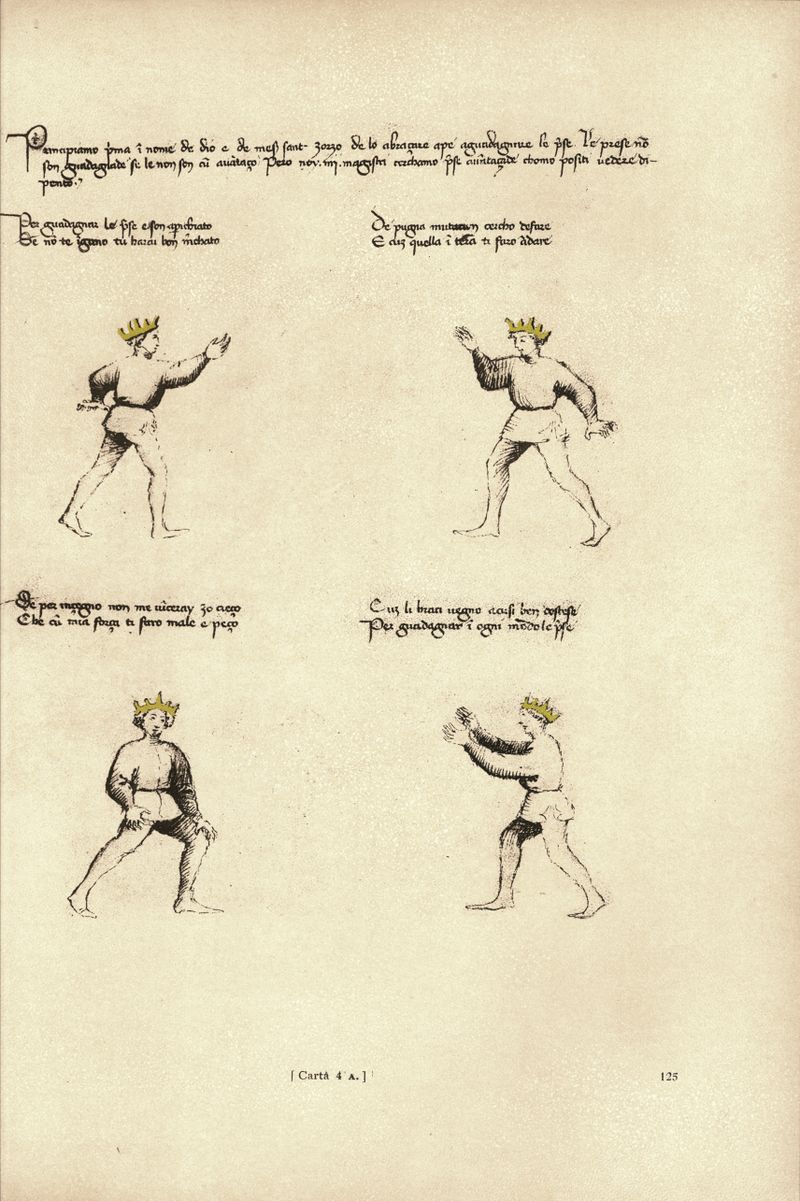 Principiamo p̄ma ī nome de dio e de mes̄ sant zorzo de lo abraçare a pe a guadagnare le p̄se. Le prese nō
son guadagnade se le non son cū auātaço Pero noy .iiii. magistri cerchamo p̄se auantaçade chomo positi uedere di-
pento.
Per guadagnar le p̄se e son aparechiato
Se nō te īgano tu harai bon m̄chato
De pugna mutacion cercho de fare
E cuȝ quella ī terra ti faro ādare
Se per inçegno non me uīceray zo creço
Che cū mia força ti faro male e peço
Cuȝ li braci uegno acusi ben destese
Per guadagnar ī ogni mōdo le p̄se
[ Carta 4 A. ]
125